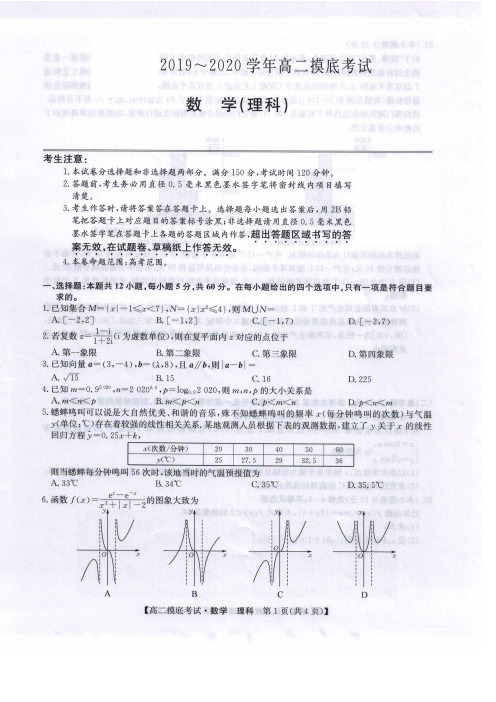 2019～2020学年高二摸底考试
数 学(理科)
考生注意：
1.本试卷分选择题和非选择题两部分。满分150分,考试时间120分钟。
2.答题前,考生务必用直径0.5毫米黑色墨水签字笔将密封线内项目填写
清楚。
3.考生作答时,请将答案答在答题卡上。选择题每小题选出答案后,用2B铅
笔把答题卡上对应题目的答案标号涂黑;非选择题请用直径0.5毫米黑色
墨水签字笔在答题卡上各题的答题区域内作答,超出答题区域书写的答
案无效,在试题卷、草稿纸上作答无效。
4.本卷命题范围:高考范围。
一、选择题:本题共12小题,每小题5分,共60分。在每小题给出的四个选项中,只有一项是符合题目要
求的。
1.已知集合M={x|-1≤x<7},N={x|x²≤4},则M∪N=
A.[-2,2] B.[-1,2] C.[-1,7) D.[-2,7)
2.若复数z=(1-i)/(1+2i)(i为虚数单位),则在复平面内z对应的点位于
A.第一象限 B.第二象限 C.第三象限 D.第四象限
3.已知向量a=(3,-4),b=(λ,8),且a∥b,则|a-b|=
A.√15 B.15 C.16 D.225
4.已知m=0.9²⁰²⁰,n=2 020⁰·⁹,p=log₀.₉2 020,则m,n,p的大小关系是
A.m<n<p B.m<p<n C.p<m<n D.p<n<m
5.蟋蟀鸣叫可以说是大自然优美、和谐的音乐,殊不知蟋蟀鸣叫的频率x(每分钟鸣叫的次数)与气温
y(单位:℃)存在着较强的线性相关关系.某地观测人员根据下表的观测数据,建立了y关于x的线性
回归方程ŷ=0.25x+k,
x(次数/分钟) 20 30 40 50 60
y(℃) 25 27.5 29 32.5 36
则当蟋蟀每分钟鸣叫56次时,该地当时的气温预报值为
A.33℃ B.34℃ C.35℃ D.35.5℃
6.函数f(x)=(eˣ-e⁻ˣ)/(x²+|x|-2)的图象大致为
y y y y
O x O x O x O x
A B C D
【高二摸底考试·数学 理科 第1页(共4页)】